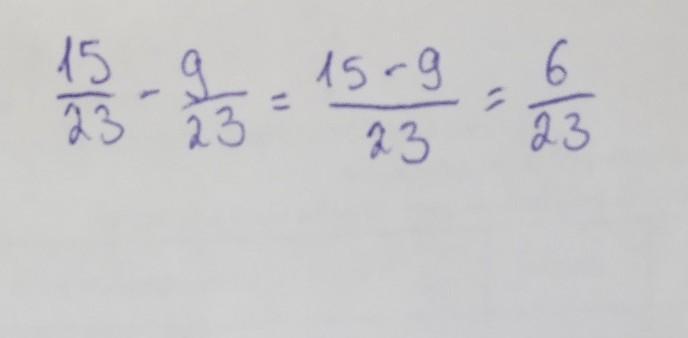 15/23 - 9/23 = 15-9/23 = 6/23